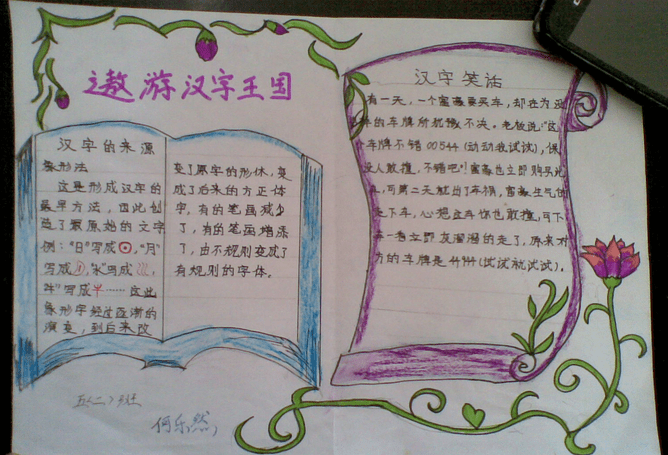 遨游汉字王国
汉字的来源
象形法
这是形成汉字的
最早方法，因此创
造了最原始的文字
例："日"写成⊙，"月"
写成，"水"写成，
"牛"写成……这些
象形字经过逐渐的
演变，到后来改
变了原字的形体，变
成了后来的方正体
字，有的笔画减少
了，有的笔画增添
了，由不规则变成了
有规则的字体。
汉字笑话
有一天，一个富豪要买车，却在为选
的车牌所犹豫不决。老板说："这
车牌不错00544（动动我试试），保
没人敢撞，不错吧！富豪也立即购买此
，可第二天就出了车祸，富豪生气的
走下车，心想这车你也敢撞，可下
车一看立即灰溜溜的走了，原来对
方的车牌是44944（试试就试试）。
五〈二〉班
何乐然